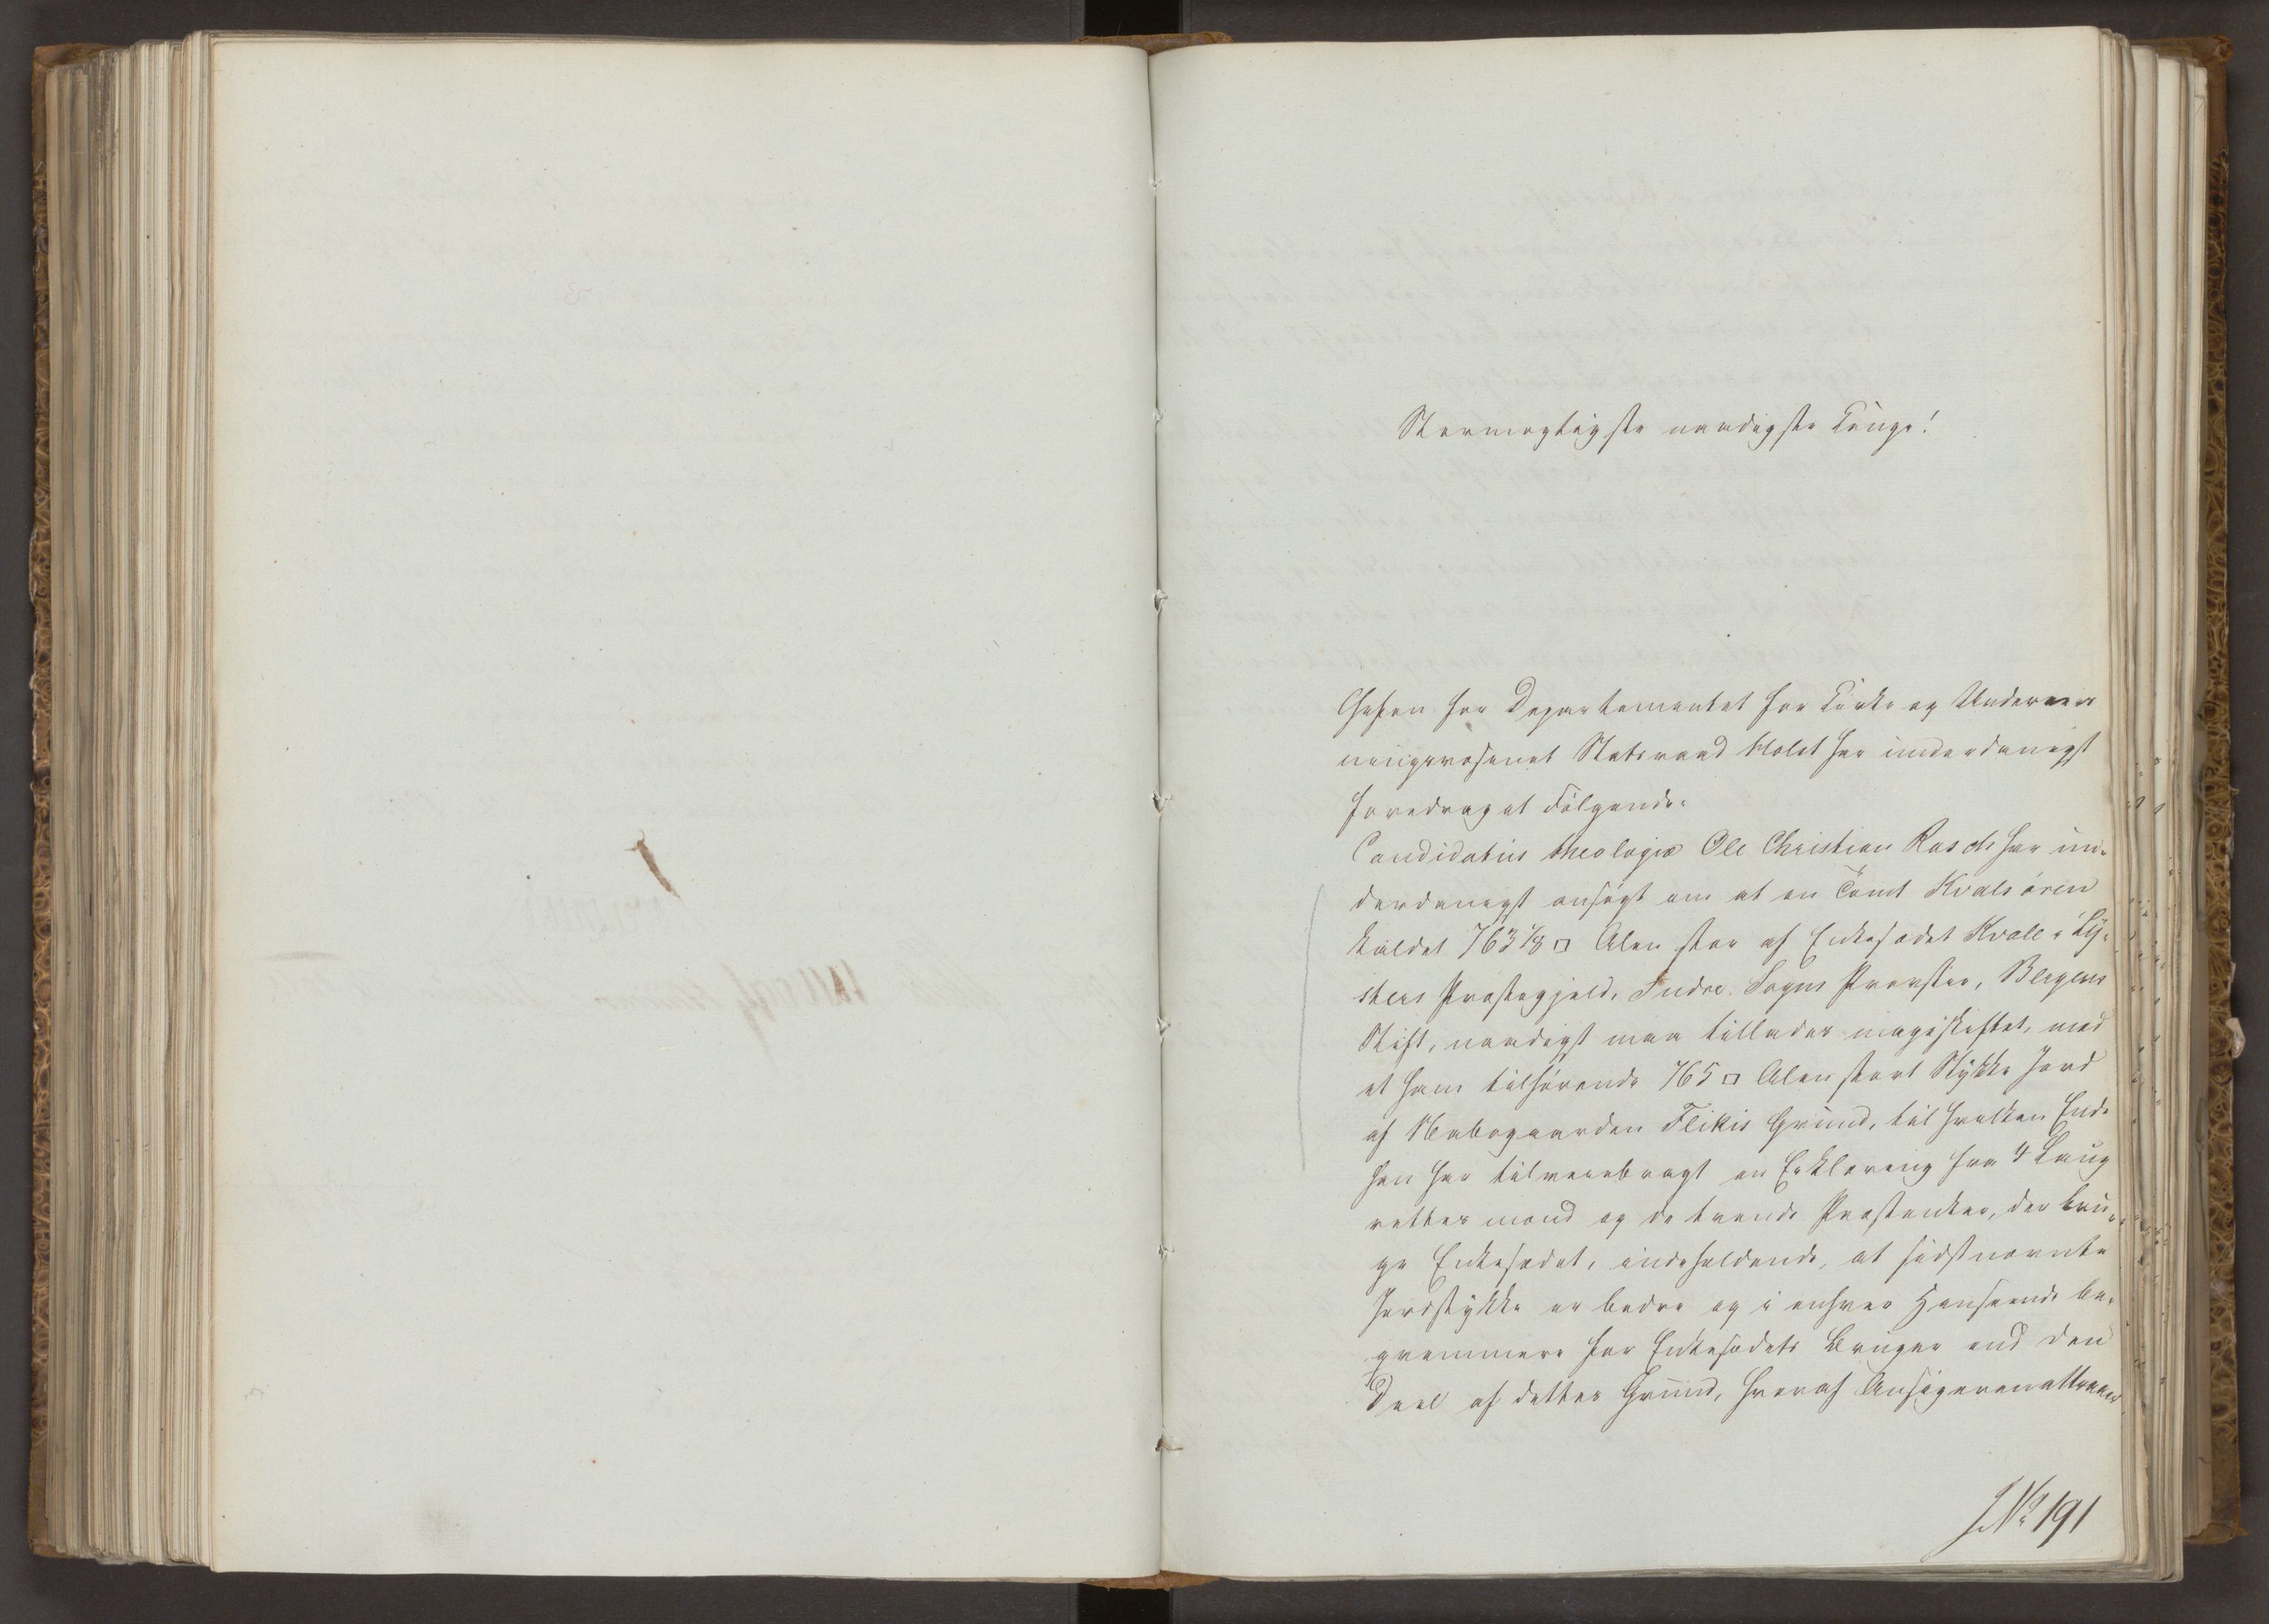 Stormægtigste naadigste Konge!
Chefen for Departementet for Kirke og Underviis
ningsvæsenet Statsraad Holst har underdanigst
foredraget Følgende:
Candidatus theologiæ Ole Christian Rasch har un-
derdanigst ansøgt om at en Tomt Kvalsøren
kaldet 763 1/8 □ Alen stor af Enkesædet Kvale i Ly-
sters Præstegjeld, Indre Sogns Provstie, Bergens
Stift, naadigst maa tillades mageskiftet, med
et ham tilhørende 765 □ Alen stort Stykke Jord
af Nabogaarden Flikis Grund, til hvilken Ende
han har tilveiebragt en Erklæring fra 4 Laug
rettesmænd og de tvende Præsteenker, der bru-
ge Enkesædet, indeholdende, at sidstnævnte
Jordstykke er bedre og i enhver Henseende be-
qvemmere for Enkesædets Bruger end den
Deel af dettes Grund, hvoraf Ansøgeren attraaer
J. № 191